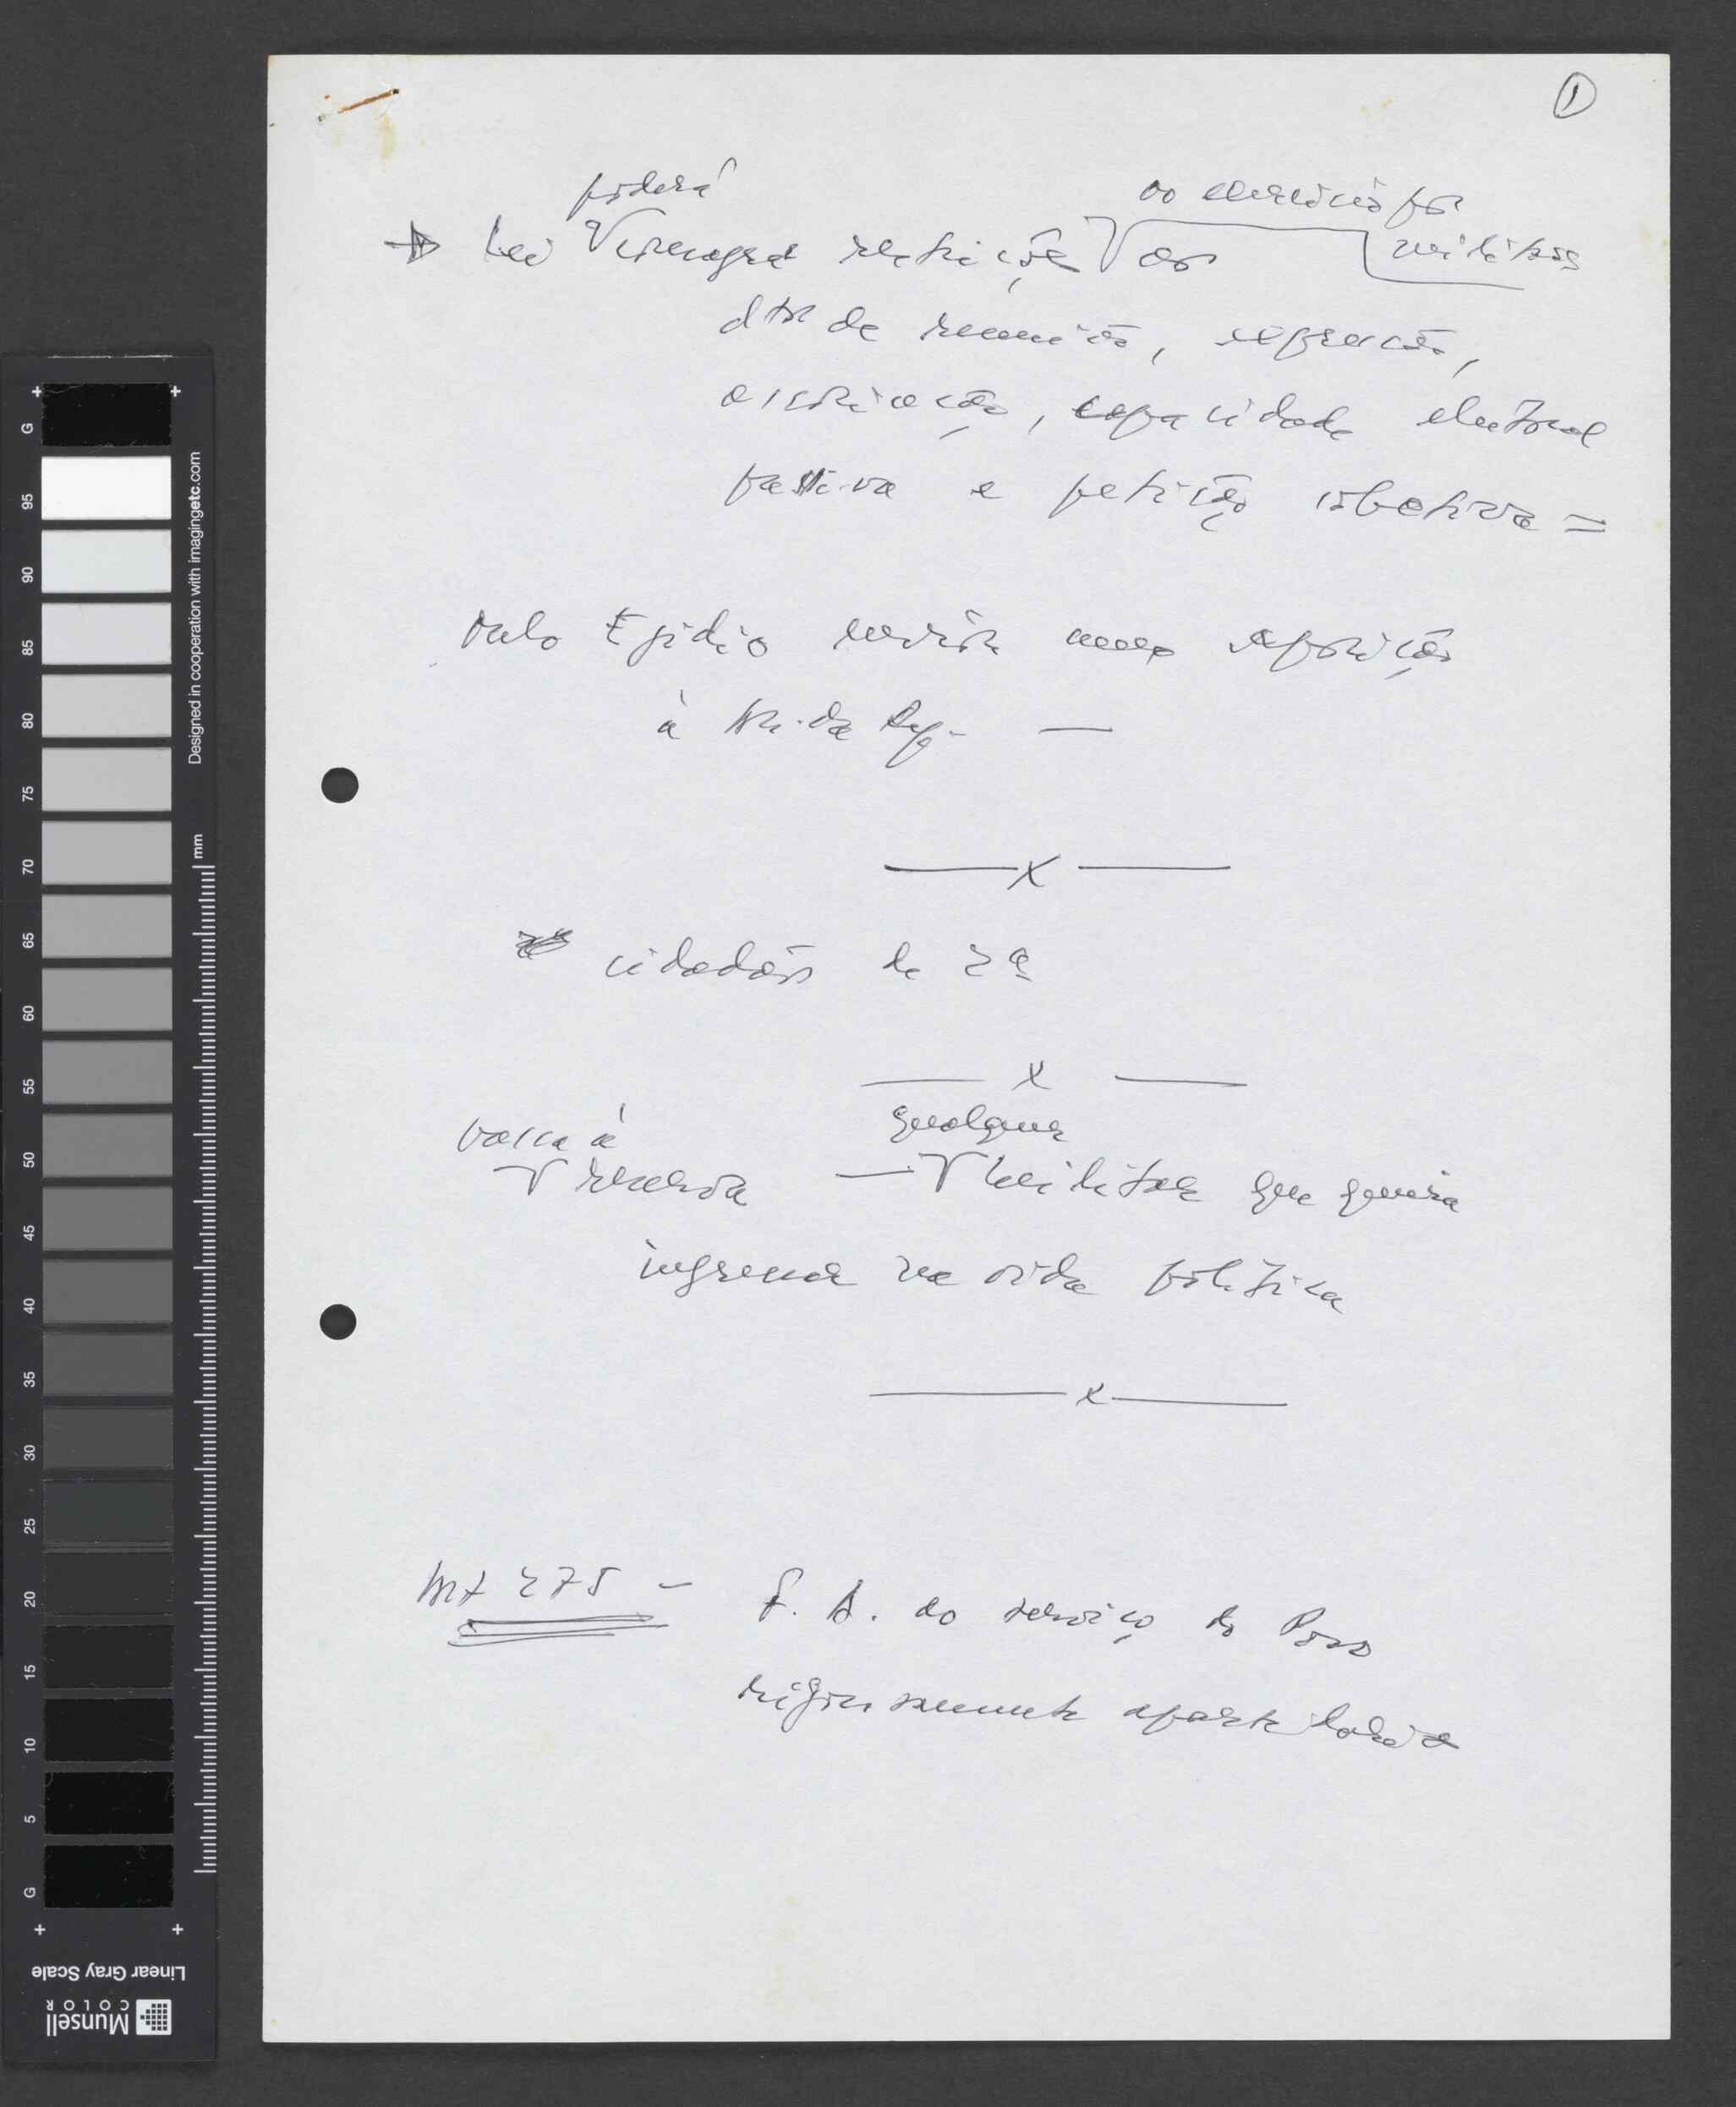 1
poderá
ao exercício por
→ Lei V consagrar restrições V aos militares
dtos de reunião, expressão,
associação, capacidade eleitoral
passiva e petição colectiva =
Melo Egídio enviou uma exposição
à Ass. da Rep. —
— x —
cidadãos de 2ª
— x —
passa à qualquer
V reserva — V militar que queira
ingressar na vida política
— x —
Art 275 — F. A. ao serviço do Povo
rigorosamente apartidária
G
95
90
85
80
75
70
65
60
55
50
45
40
35
30
25
20
15
10
5
G
Designed in cooperation with imagingetc.com
mm
Linear Gray Scale
Munsell
COLOR